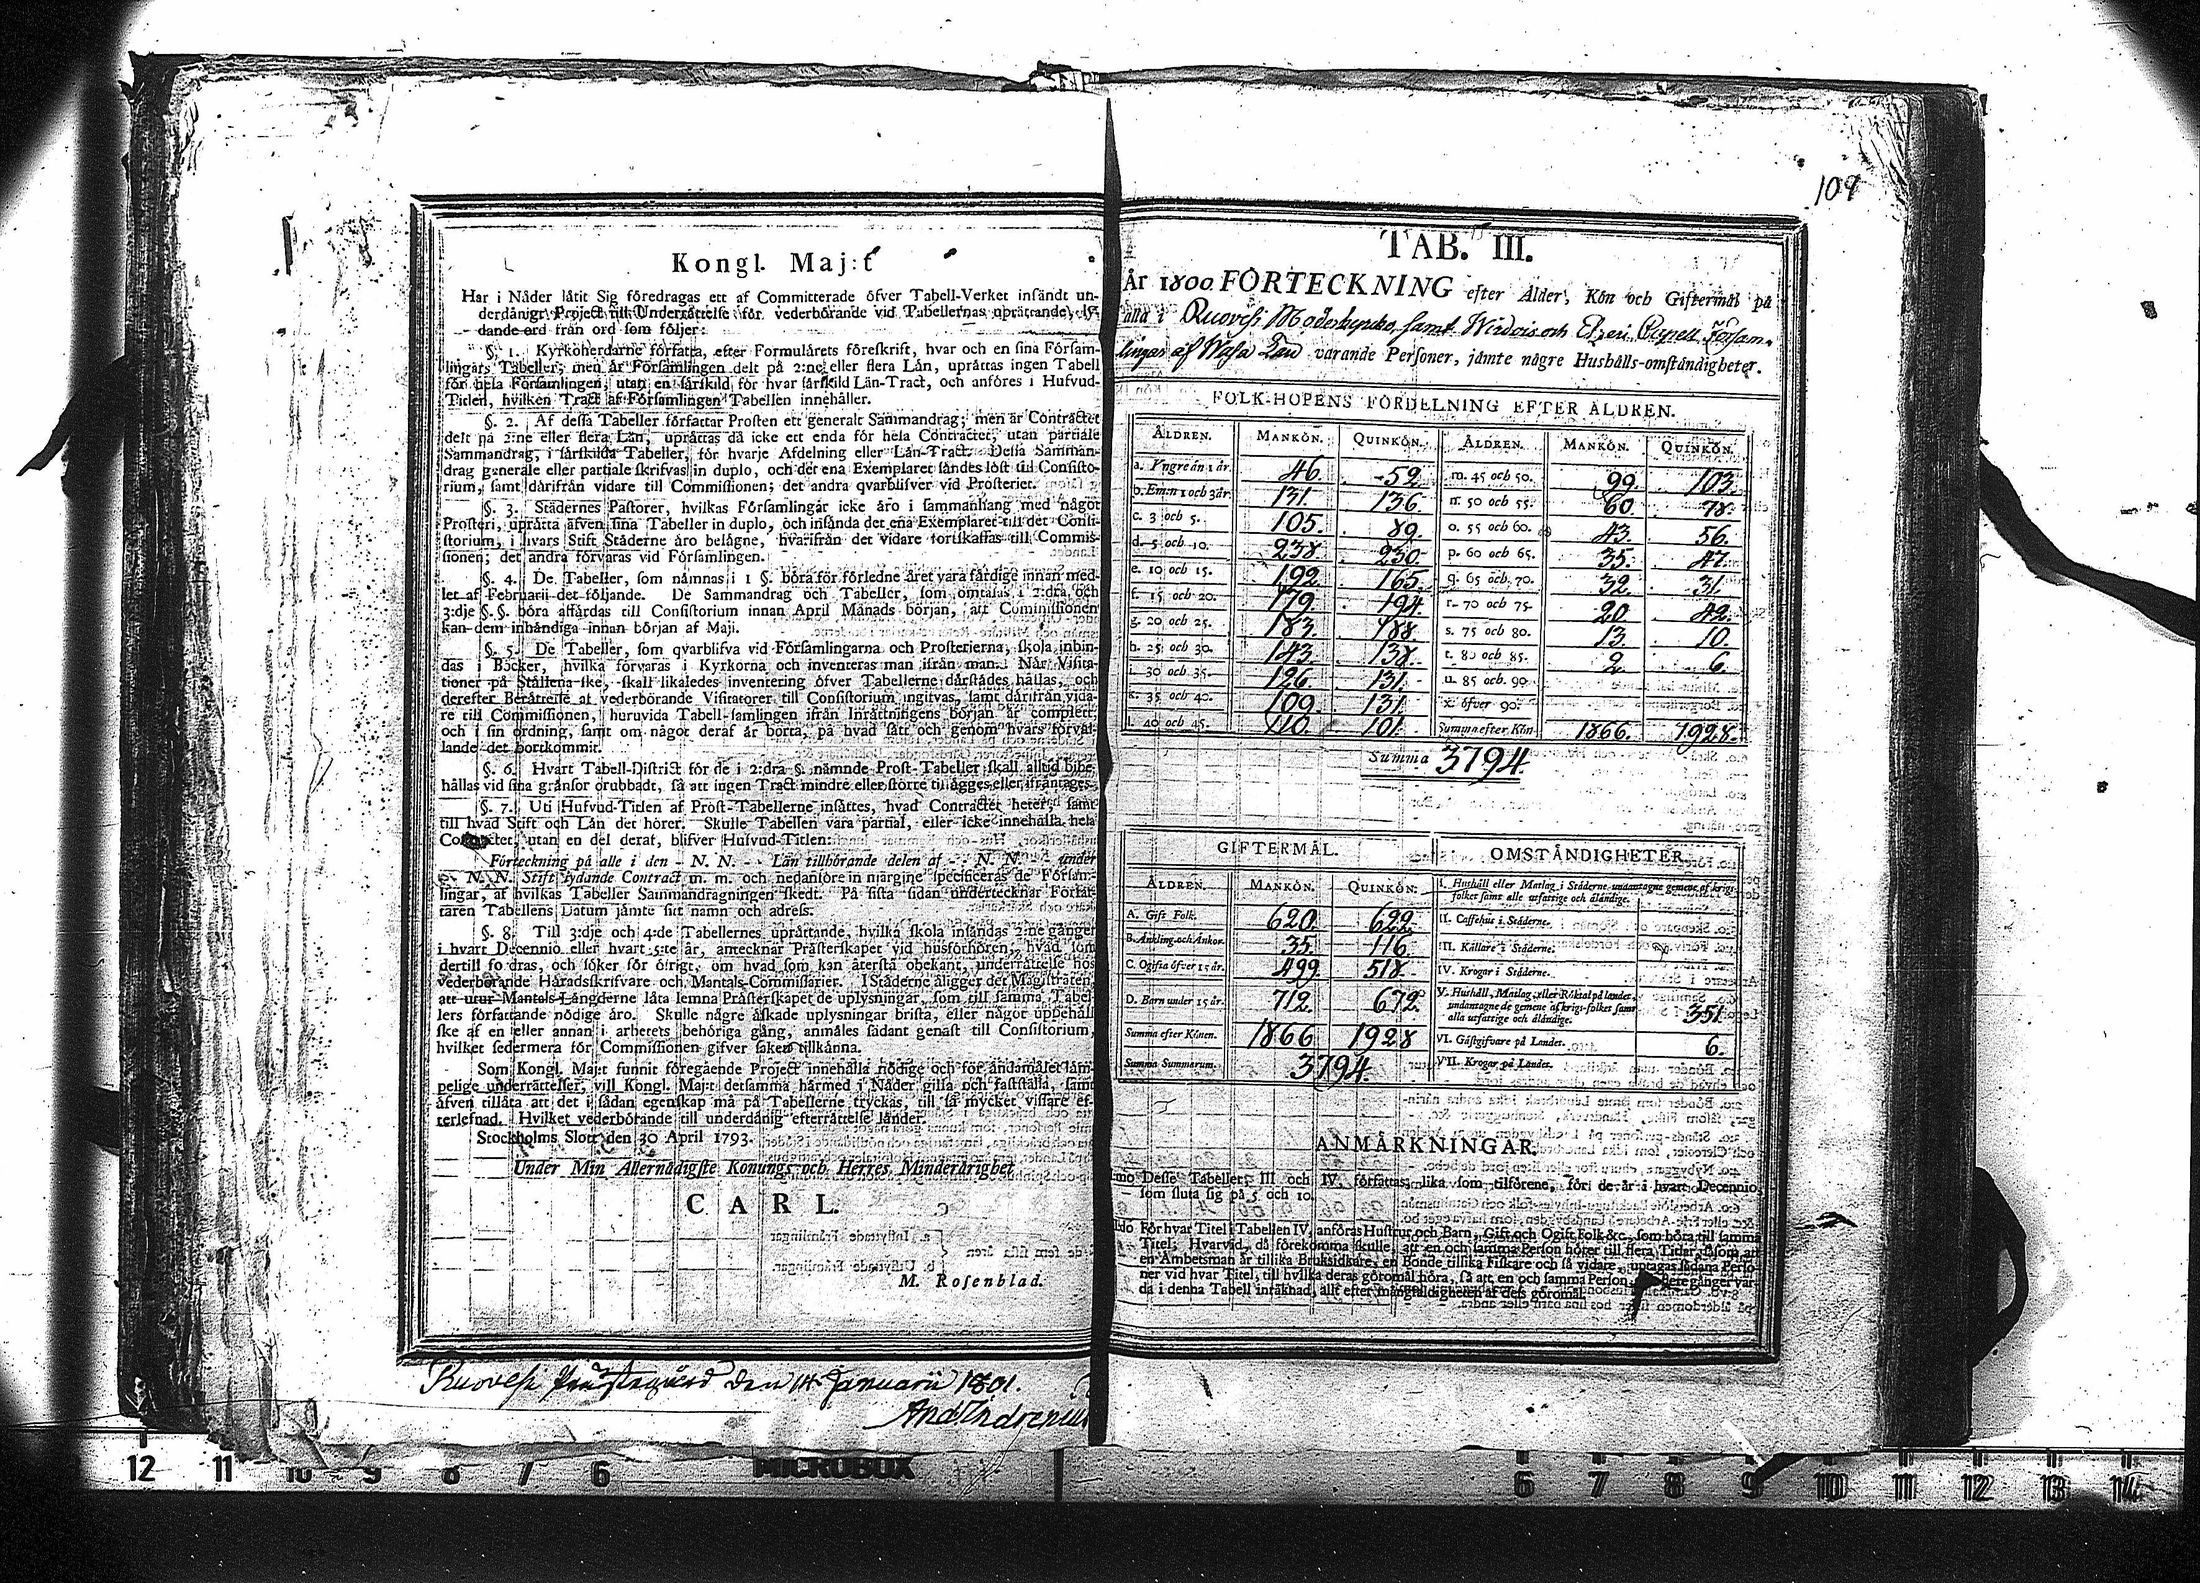 109
Kongl. Maj:t
Har i Nåder låtit Sig föredragas ett af Committerade öfver Tabell-Verket insändt un-
derdånigt Project till Underrättelse för vederbörande vid Tabellernas uprättande, ly-
dande ord från ord som följer:
§. 1. Kyrkoherdarne författa, efter Formulärets föreskrift, hvar och en sina Församl-
lingars Tabeller; men är Församlingen delt på 2:ne eller flera Län, uprättas ingen Tabell
för hela Församlingen, utan en särskild för hvar särskild Län-Tract, och anföres i Hufvud-
Titlen, hvilken Tract af Församlingen Tabellen innehåller.
§. 2. Af dessa Tabeller författar Prosten ett generalt Sammandrag; men är Contractet
delt på 2:ne eller flera Län, uprättas då icke ett enda för hela Contractet, utan partiale
Sammandrag, i särskilda Tabeller, för hvarje Afdelning eller Län-Tract. Dessa Samman-
drag generale eller partiale skrifvas in duplo, och det ena Exemplaret sändes löst till Consisto-
rium, samt därifrån vidare till Commissionen; det andra qvarblifver vid Prosteriet.
§. 3. Städernes Pastorer, hvilkas Församlingar icke äro i sammanhang med något
Prosteri, uprätta äfven sina Tabeller in duplo, och insända det ena Exemplaret till det Consi-
storium, i hvars Stift Städerne äro belägne, hvarifrån det vidare fortskaffas till Commis-
sionen; det andra förvaras vid Församlingen.
§. 4. De Tabeller, som nämnas i 1 §. böra för förledne året vara färdige innan med-
let af Februarii det följande. De Sammandrag och Tabeller, som omtalas i 2:dra och
3:dje §. §. böra affärdas till Consistorium innan April Månads början, att Commissionen
kan dem inhändiga innan början af Maji.
§. 5. De Tabeller, som qvarblifva vid Församlingarna och Prosterierna, skola inbin-
das i Böcker, hvilka förvaras i Kyrkorna och inventeras man ifrån man. När Visita-
tioner på Ställena ske, skall likaledes inventering öfver Tabellerne därstädes hållas, och
derefter Berättelse af vederbörande Visitatorer till Consistorium ingitvas, samt därifrån vida-
re till Commissionen, huruvida Tabell-samlingen ifrån Inrättningens början är complett,
och i sin ordning, samt om något deraf är borta, på hvad sätt och genom hvars förvål-
lande det bortkommit.
§. 6. Hvart Tabell-District för de i 2:dra §. nämnde Prost-Tabeller skall alltid bibe-
hållas vid sina gränsor orubbadt, så att ingen Tract mindre eller större tillägges eller ifråntages.
§. 7. Uti Hufvud-Titlen af Prost-Tabellerne insättes, hvad Contractet heter, samt
till hvad Stift och Län det hörer. Skulle Tabellen vara partial, eller icke innehålla hela
Contractet, utan en del deraf, blifver Hufvud-Titlen:
Förteckning på alle i den - N. N. - - Län tillhörande delen af - - N. N. - under
- N. N. Stift lydande Contract m. m. och nedanföre in margine specificeras de Försam-
lingar, af hvilkas Tabeller Sammandragningen skedt. På sista sidan undertecknar Förfat-
taren Tabellens Datum jämte sitt namn och adress.
§. 8. Till 3:dje och 4:de Tabellernes uprättande, hvilka skola insändas 2:ne gånger
i hvart Decennio eller hvart 5:te år, antecknar Prästerskapet vid husförhören, hvad som
dertill fodras, och söker för öfrigt, om hvad som kan återstå obekant, underrättelse hos
vederbörande Häradsskrifvare och Mantals-Commissarier. I Städerne åligger det Magistraten,
att utur Mantals-Längderne låta lemna Prästerskapet de uplysningar, som till samma Tabel-
lers författande nödige äro. Skulle någre äskade uplysningar brista, eller något uppehåll
ske af en eller annan i arbetets behöriga gång, anmäles sådant genast till Consistorium,
hvilket sedermera för Commissionen gifver saken tillkänna.
Som Kongl. Maj:t funnit föregående Project innehålla nödige och för ändamålet läm-
pelige underrättelser, vill Kongl. Maj:t detsamma härmed i Nåder gilla och fastställa, samt
äfven tillåta att det i sådan egenskap må på Tabellerne tryckas, till så mycket vissare ef-
terlefnad. Hvilket vederbörande till underdånig efterrättelse länder.
Stockholms Slott den 30 April 1793.
Under Min Allernådigste Konungs och Herres Minderårighet
CARL.
M. Rosenblad.
Ruovesi Prästegård den 14 Januarii 1801.
TAB. III.
År 1800 FÖRTECKNING efter Ålder, Kön och Giftermål på
alla i Ruovesi Moderkyrko, samt Wirdois och Capell Försam-
lingar af Wasa Län varande Personer, jämte någre Hushålls-omständigheter.
FOLK-HOPENS FÖRDELNING EFTER ÅLDREN.
ÅLDREN. MANKÖN. QUINKÖN. ÅLDREN. MANKÖN. QUINKÖN.
a. Yngre än 1 år. 46. 52. m. 45 och 50. 99. 103.
b. Emn 1 och 3 år. 131. 136. n. 50 och 55. 60. 78.
c. 3 och 5. 105. 89. o. 55 och 60. 43. 56.
d. 5 och 10. 238. 230. p. 60 och 65. 35. 47.
e. 10 och 15. 192. 165. q. 65 och 70. 32. 31.
f. 15 och 20. 179. 194. r. 70 och 75. 20. 42.
g. 20 och 25. 183. 188. s. 75 och 80. 13. 10.
h. 25 och 30. 143. 138. t. 80 och 85. 2. 6.
i. 30 och 35. 126. 131. u. 85 och 90.
k. 35 och 40. 109. 131. x. öfver 90.
l. 40 och 45. 110. 101. Summa efter Kön 1866. 1928.
Summa 3794.
GIFTERMÅL. OMSTÅNDIGHETER.
ÅLDREN. MANKÖN. QUINKÖN.
A. Gift Folk. 620. 622.
B. Änkling. och Änkor. 35. 116.
C. Ogifta öfver 15 år. 499. 518.
D. Barn under 15 år. 712. 672.
Summa efter Könen. 1866 1928
Summa Summarum. 3794.
I. Hushåll eller Matlag i Städerne undantagne gemene af krigs-
folket samt alle utfattige och åländige.
II. Caffehus i Städerne.
III. Källare i Städerne.
IV. Krogar i Städerne.
V. Hushåll, Matlag, eller Röktal på landet,
undantagne de gemene af krigs-folket samt
alla utfattige och åländige. 351.
VI. Gästgifvare på Landet. 6.
VII. Krogar på Landet.
ANMÄRKNINGAR.
1mo Desse Tabeller, III och IV, författas, lika som tilförene, för de år i hvart Decennio,
som sluta sig på 5 och 10.
2do För hvar Titel i Tabellen IV, anföras Hustrur och Barn, Gift och Ogift Folk &c. som höra till samma
Titel. Hvarvid, då förekomma skulle, att en och samma Person hörer till flera Titlar, såsom att
en Ämbetsman är tillika Bruksidkare, en Bonde tillika Fiskare och så vidare, uptagas sådana Perso-
ner vid hvar Titel, till hvilka deras göromål höra, så att en och samma Person flere gånger var-
da i denna Tabell inräknad, allt efter mångfaldigheten af dess göromål.
MICROBOX
12 11 10 9 8 7 6
6 7 8 9 10 11 12 13 14